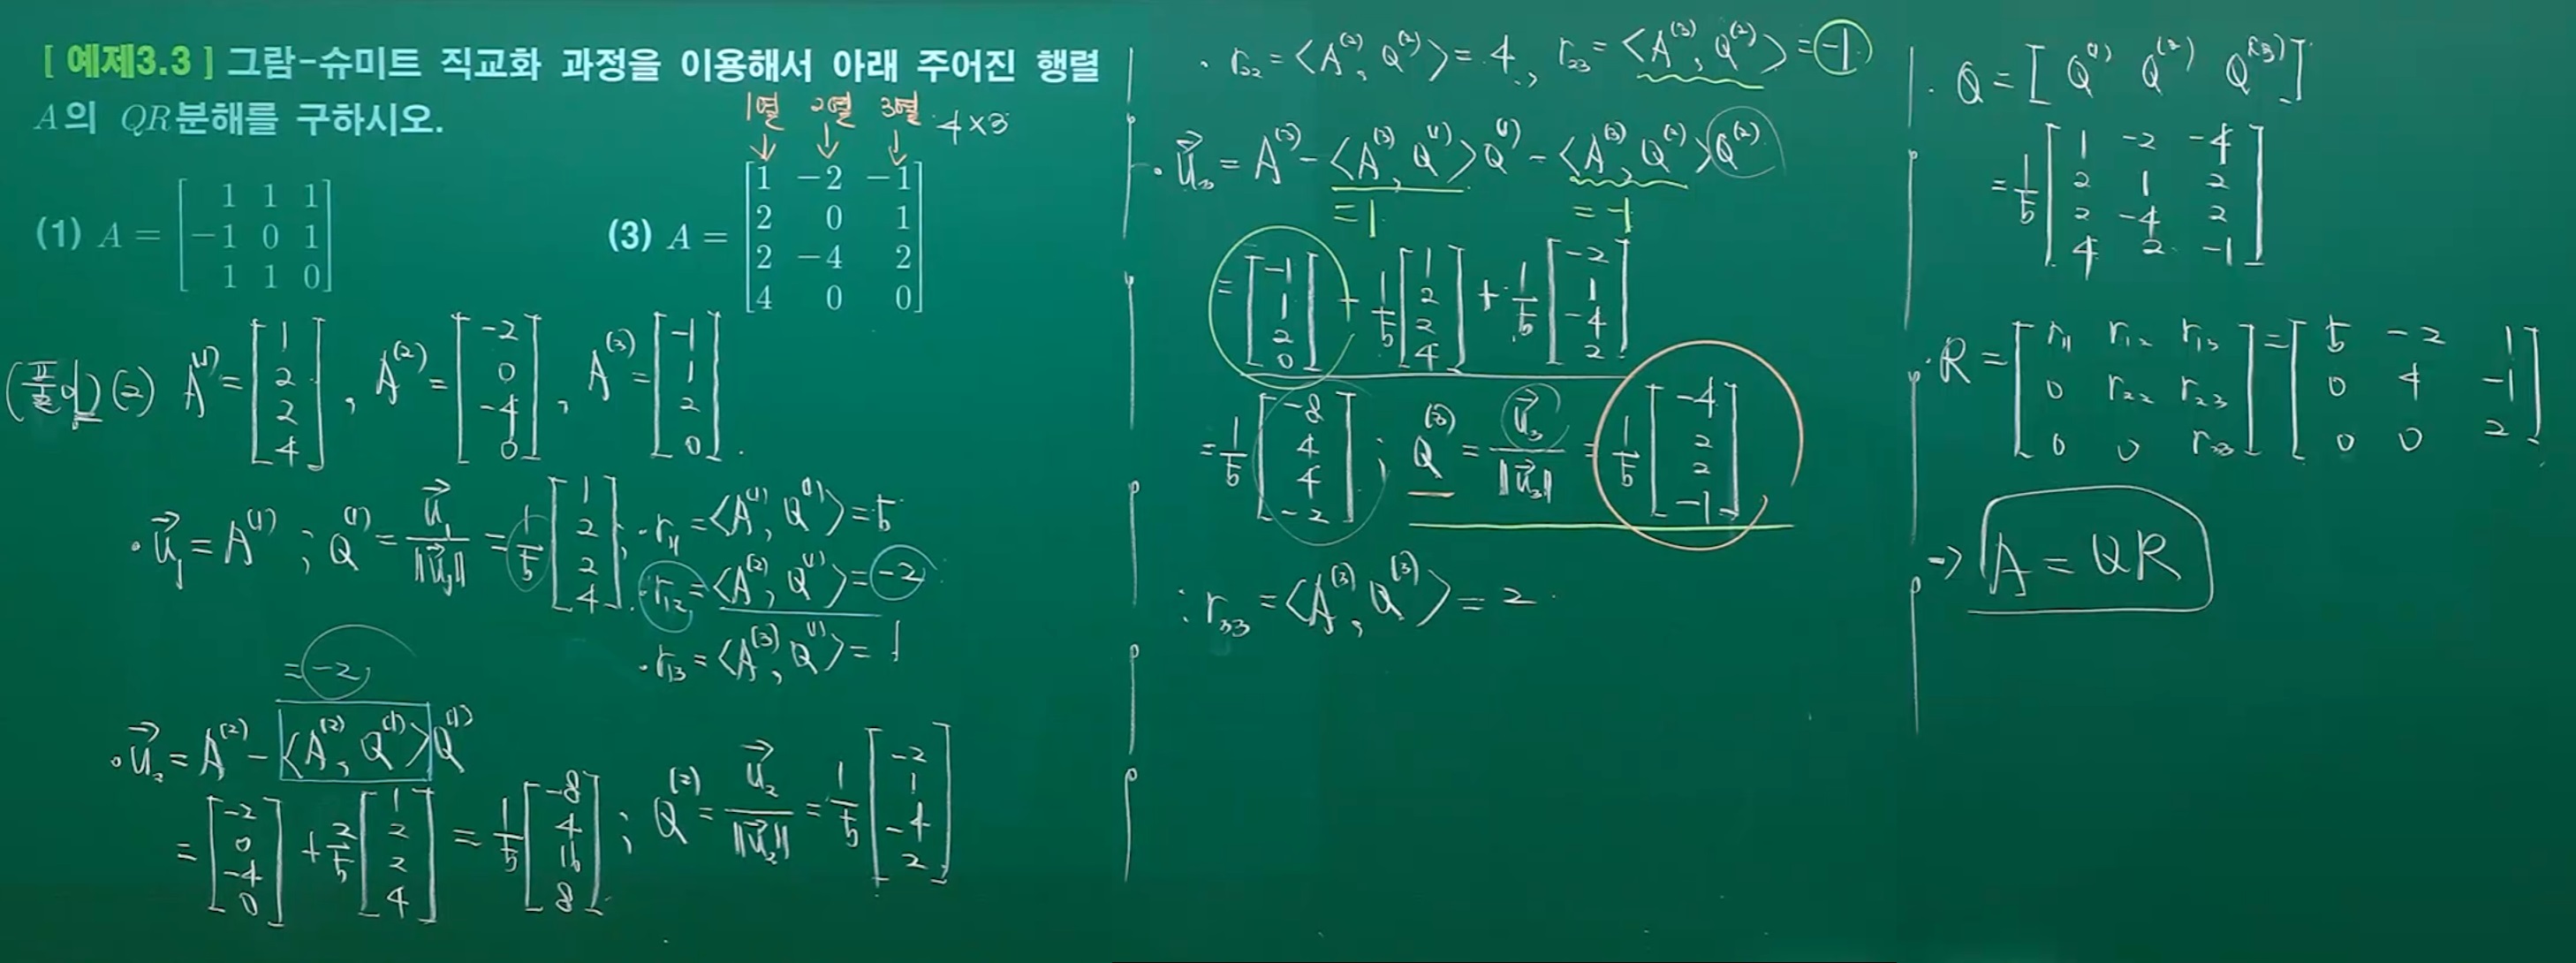 [ 예제3.3 ] 그람-슈미트 직교화 과정을 이용해서 아래 주어진 행렬
A의 QR분해를 구하시오.
1열 2열 3열 4×3
↓ ↓ ↓
(1) A = [1 1 1; -1 0 1; 1 1 0]
(3) A = [1 -2 -1; 2 0 1; 2 -4 2; 4 0 0]
(풀이) (2) A⁽¹⁾ = [1; 2; 2; 4], A⁽²⁾ = [-2; 0; -4; 0], A⁽³⁾ = [-1; 1; 2; 0].
· u⃗₁ = A⁽¹⁾ ; Q⁽¹⁾ = u⃗₁/‖u⃗₁‖ = 1/5 [1; 2; 2; 4],
· r₁₁ = <A⁽¹⁾, Q⁽¹⁾> = 5
· r₁₂ = <A⁽²⁾, Q⁽¹⁾> = -2
· r₁₃ = <A⁽³⁾, Q⁽¹⁾> = 1
= -2
· u⃗₂ = A⁽²⁾ - <A⁽²⁾, Q⁽¹⁾>Q⁽¹⁾
= [-2; 0; -4; 0] + 2/5 [1; 2; 2; 4] = 1/5 [-8; 4; 16; 8] ; Q⁽²⁾ = u⃗₂/‖u⃗₂‖ = 1/5 [-2; 1; -4; 2]
· r₂₂ = <A⁽²⁾, Q⁽²⁾> = 4, r₂₃ = <A⁽³⁾, Q⁽²⁾> = -1
· u⃗₃ = A⁽³⁾ - <A⁽³⁾, Q⁽¹⁾>Q⁽¹⁾ - <A⁽³⁾, Q⁽²⁾>Q⁽²⁾
=1 =-1
= [-1; 1; 2; 0] + 1/5 [1; 2; 2; 4] + 1/5 [-2; 1; -4; 2]
= 1/5 [-8; 4; 4; -2] ; Q⁽³⁾ = u⃗₃/‖u⃗₃‖ = 1/5 [-4; 2; 2; -1]
: r₃₃ = <A⁽³⁾, Q⁽³⁾> = 2
· Q = [Q⁽¹⁾ Q⁽²⁾ Q⁽³⁾]
= 1/5 [1 -2 -4; 2 1 2; 2 -4 2; 4 2 -1]
· R = [r₁₁ r₁₂ r₁₃; 0 r₂₂ r₂₃; 0 0 r₃₃] = [5 -2 1; 0 4 -1; 0 0 2]
→ A = QR